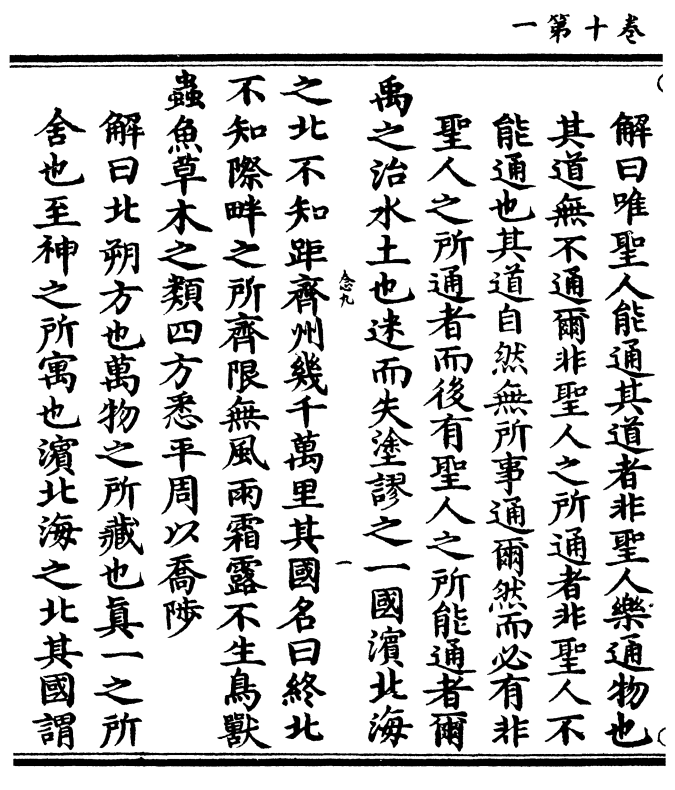 卷十第一
解曰唯聖人能通其道者非聖人樂通物也
其道無不通爾非聖人之所通者非聖人不
能通也其道自然無所事通爾然而必有非
聖人之所通者而後有聖人之所能通者爾
禹之治水土也迷而失塗謬之一國濱北海
念九
一
之北不知距齊州幾千萬里其國名曰終北
不知際畔之所齊限無風雨霜露不生鳥獸
蟲魚草木之類四方悉平周以喬陟
解曰北朔方也萬物之所藏也真一之所
舍也至神之所寓也濱北海之北其國謂